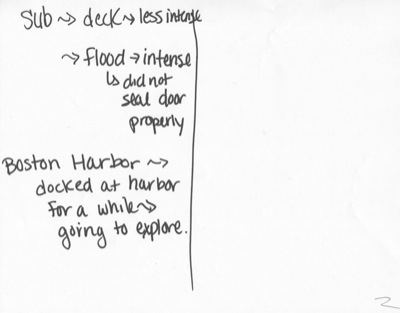 Sub ~> deck ~> less intense
~> flood → intense
↳ did not
seal door
properly
Boston Harbor ~>
docked at harbor
for a while ~>
going to explore.
2